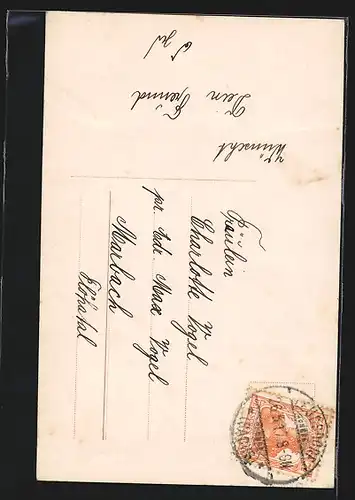 Wünscht
Dein Freund
Fräulein
Charlotte Vogel
pr. Adr. Max Vogel
Marbach
Flöhatal